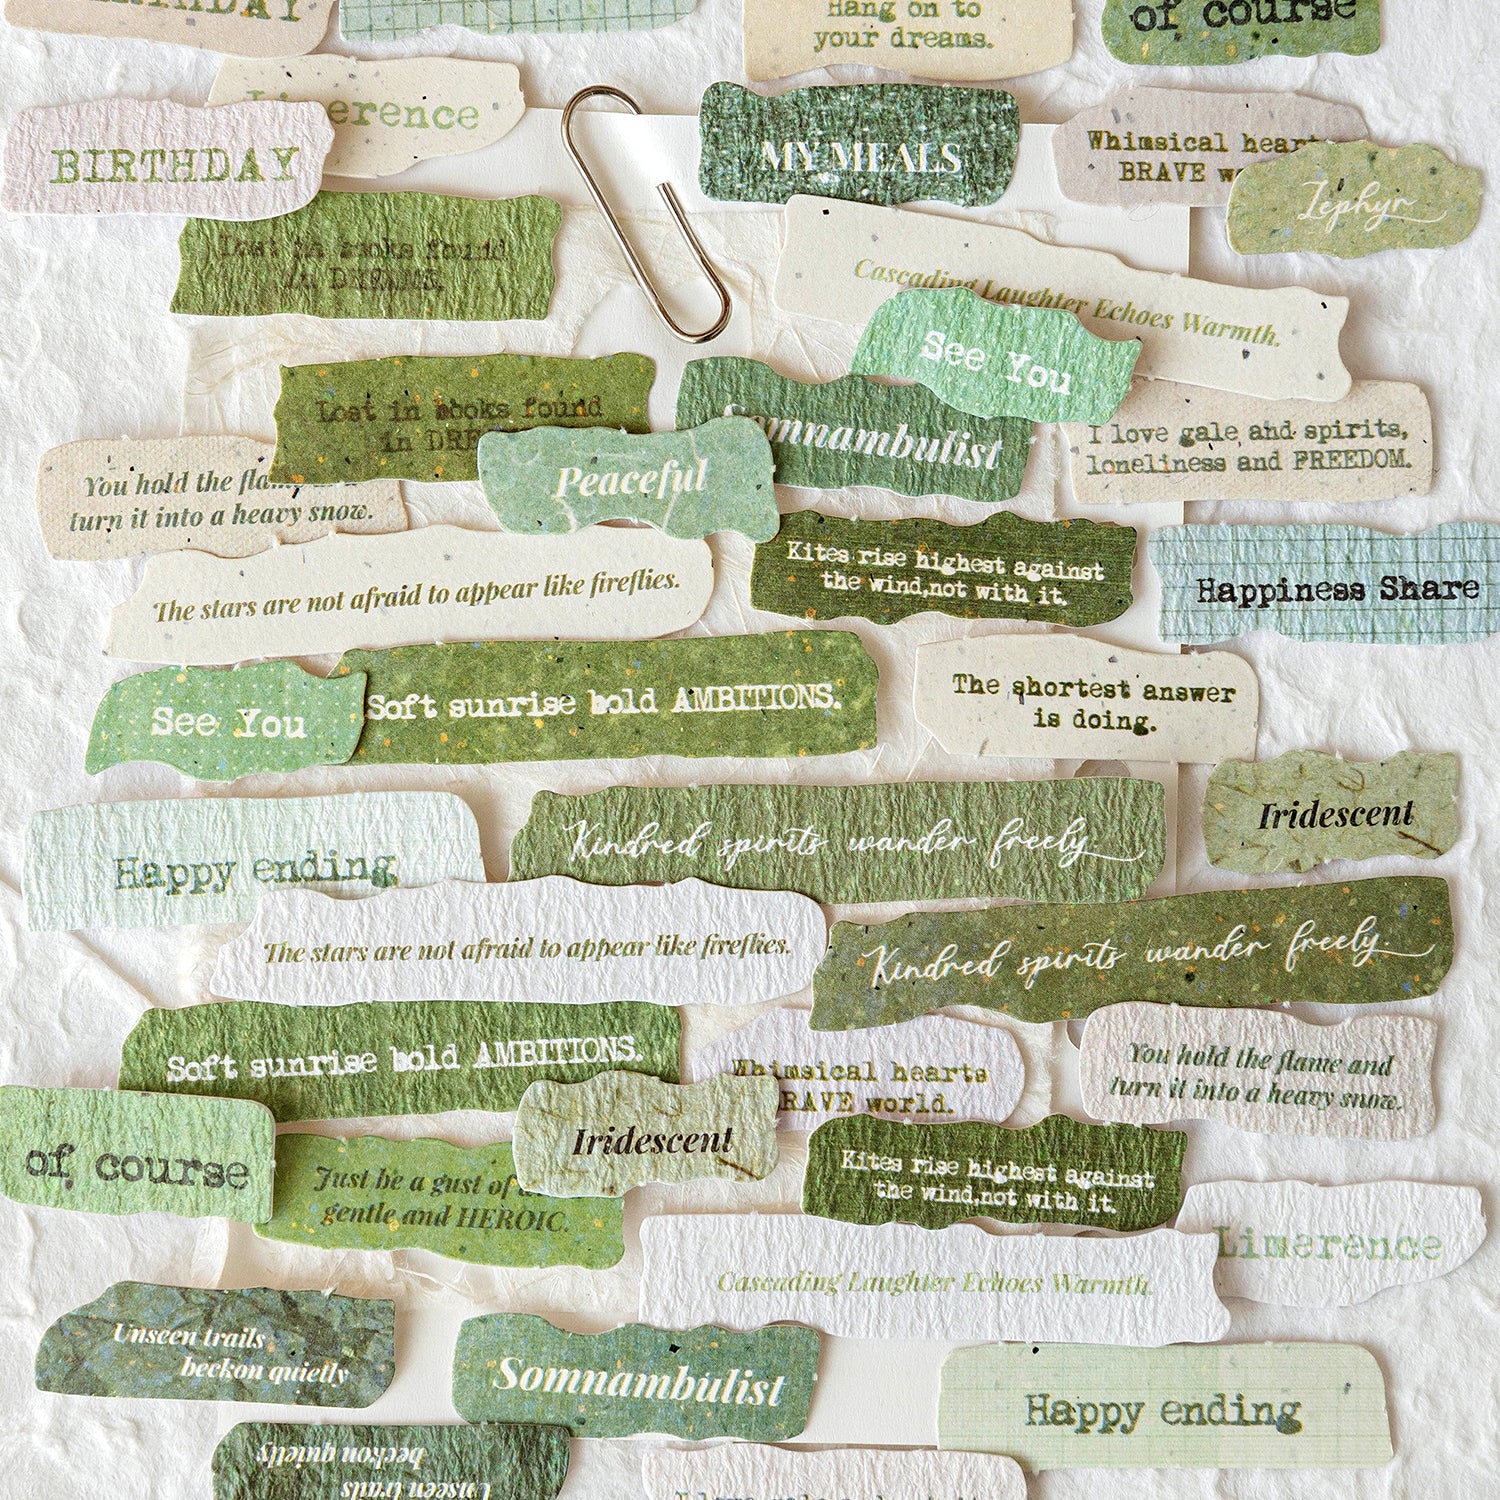 BIRTHDAY
Hang on to
your dreams.
of course
Limerence
BIRTHDAY
MY MEALS
Whimsical hearts
BRAVE
Zephyr
Lost in books found
in DREAMS.
Cascading Laughter Echoes Warmth.
See You
Lost in books found
in
Somnambulist
I love gale and spirits,
loneliness and FREEDOM.
You hold the
turn it into a heavy snow.
Peaceful
The stars are not afraid to appear like fireflies.
Kites rise highest against
the wind,not with it.
Happiness Share
See You
Soft sunrise bold AMBITIONS.
The shortest answer
is doing.
Iridescent
Happy ending
Kindred spirits wander freely.
The stars are not afraid to appear like fireflies.
Kindred spirits wander freely.
Soft sunrise bold AMBITIONS.
Whimsical hearts
BRAVE world.
You hold the flame and
turn it into a heavy snow.
of course
Just be a gust of
gentle and HEROIC.
Iridescent
Kites rise highest against
the wind,not with it.
Limerence
Cascading Laughter Echoes Warmth.
Unseen trails
beckon quietly
Somnambulist
Happy ending
Unseen trails
beckon quietly